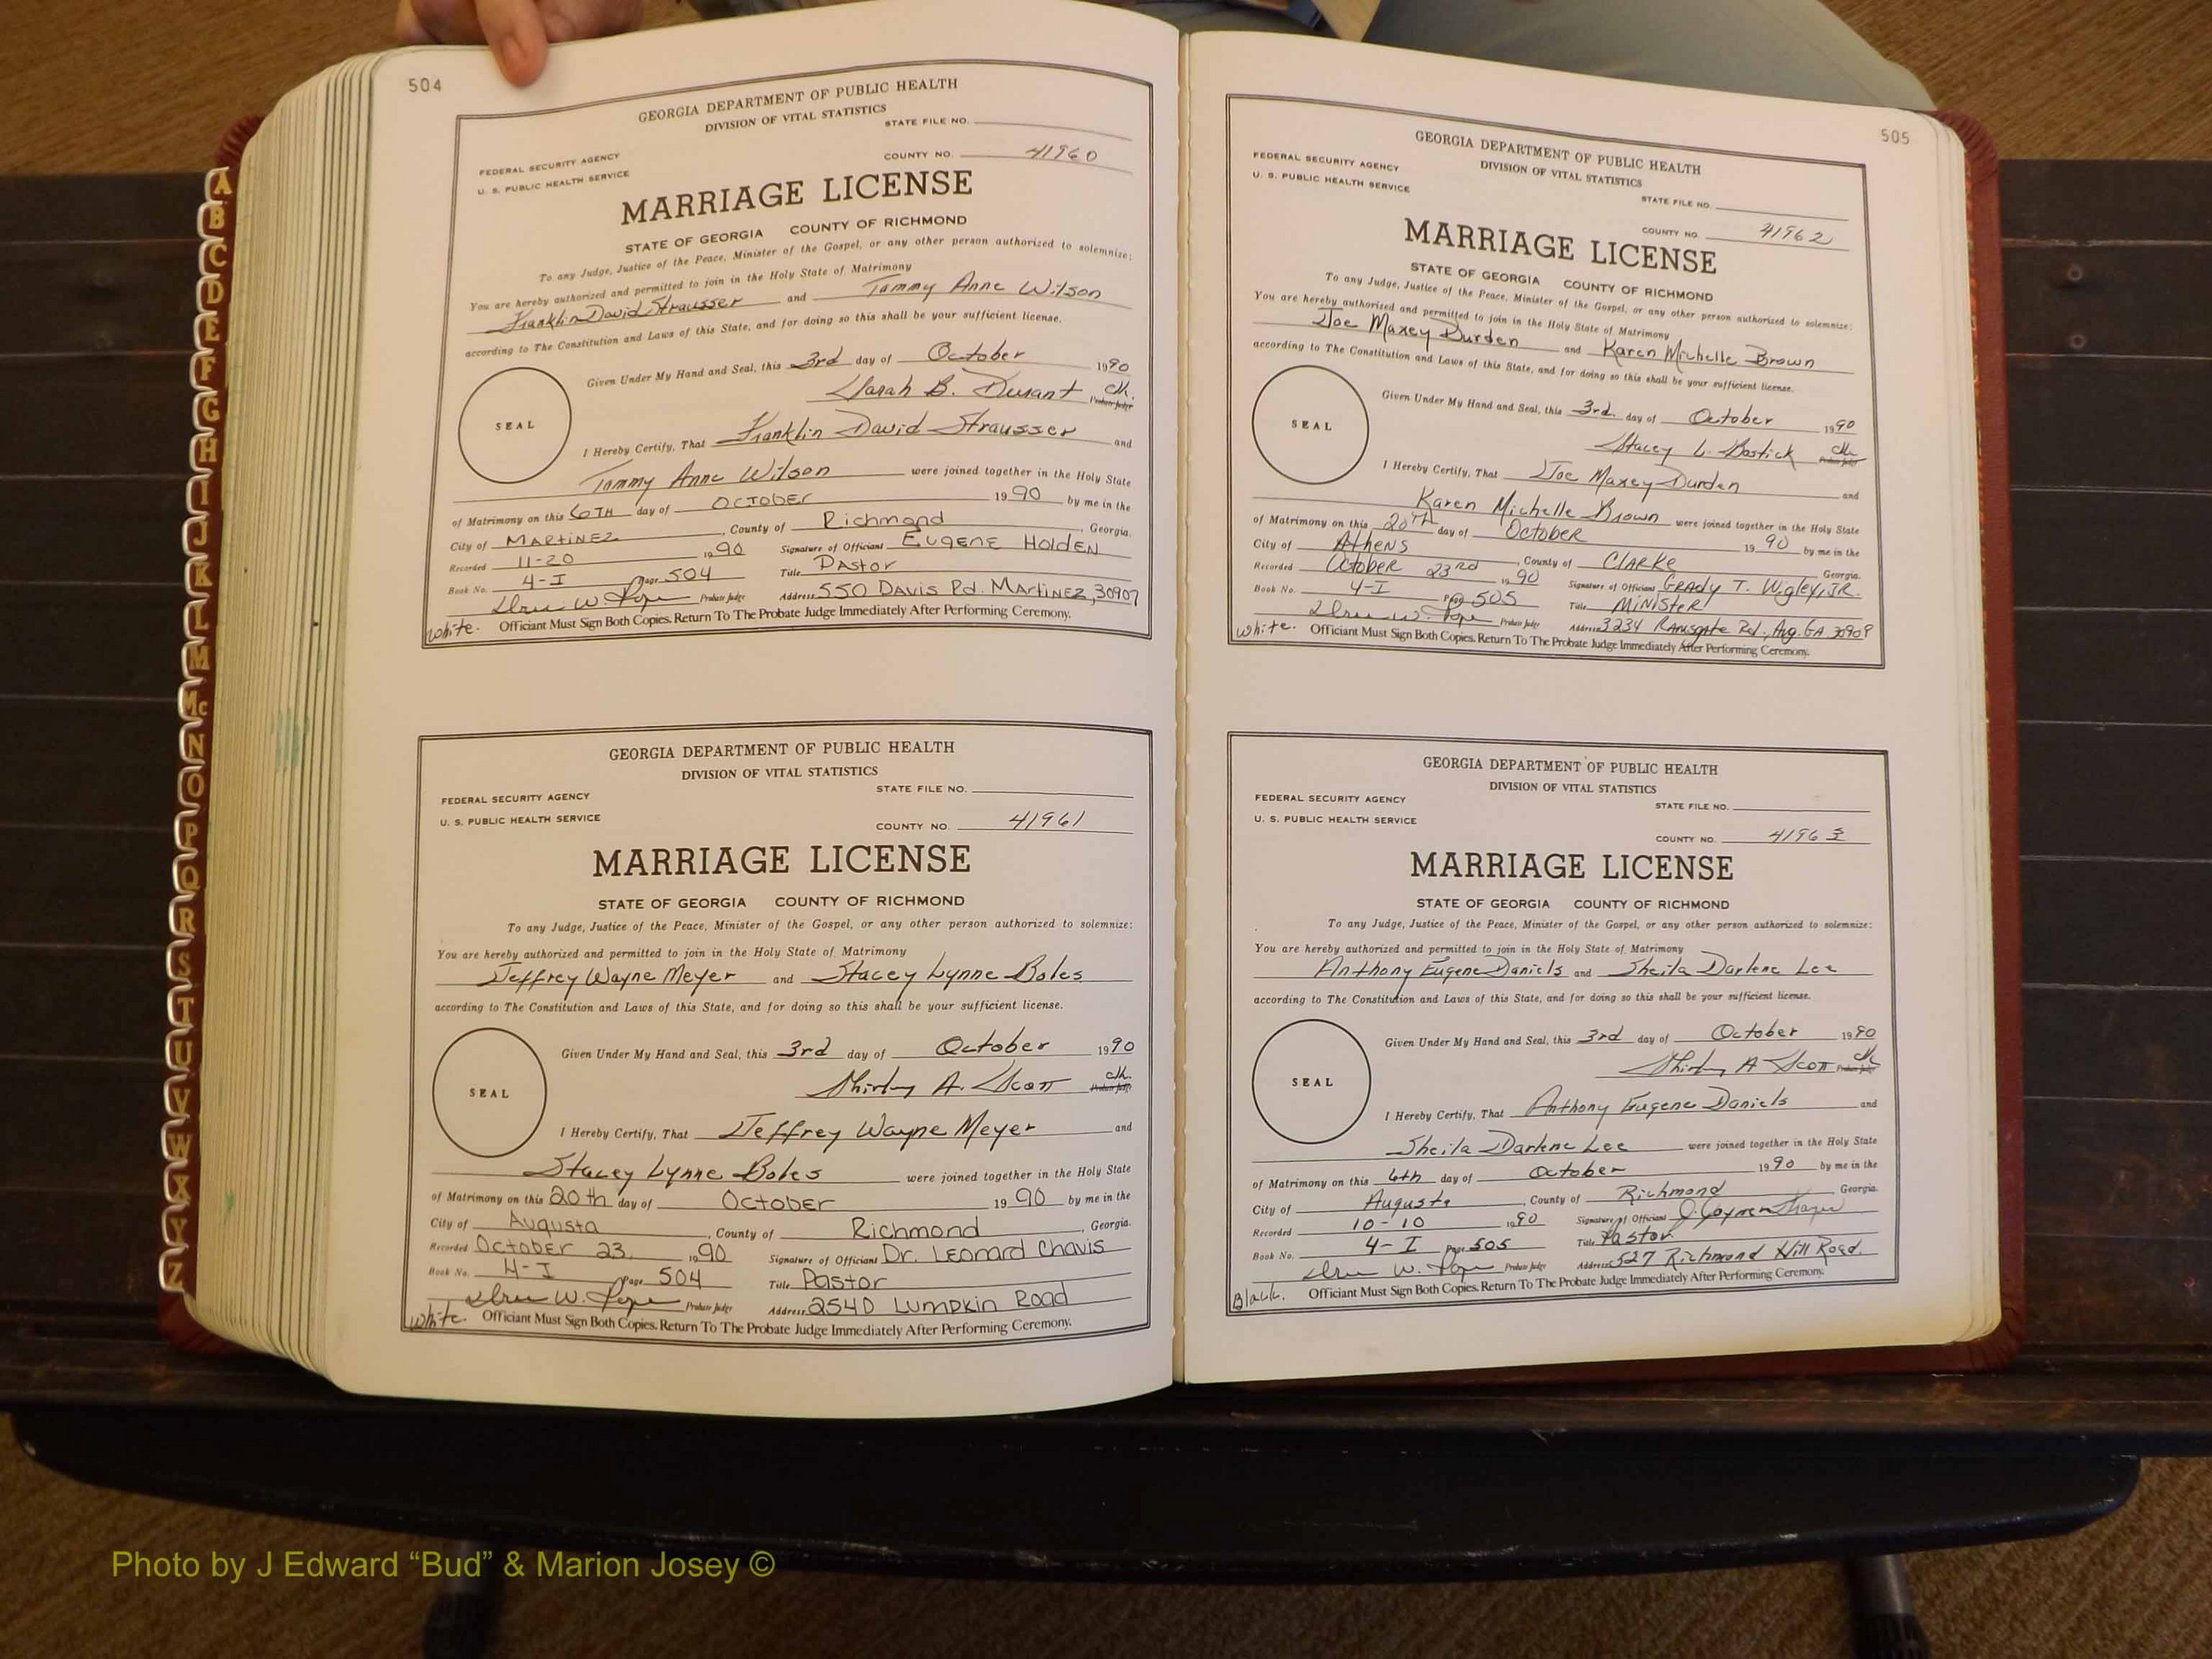 504
GEORGIA DEPARTMENT OF PUBLIC HEALTH
DIVISION OF VITAL STATISTICS
STATE FILE NO.
FEDERAL SECURITY AGENCY
U. S. PUBLIC HEALTH SERVICE
COUNTY NO. 41960
MARRIAGE LICENSE
STATE OF GEORGIA COUNTY OF RICHMOND
To any Judge, Justice of the Peace, Minister of the Gospel, or any other person authorized to solemnize:
You are hereby authorized and permitted to join in the Holy State of Matrimony
Franklin David Strausser and Tammy Anne Wilson
according to The Constitution and Laws of this State, and for doing so this shall be your sufficient license.
Given Under My Hand and Seal, this 3rd day of October 1990
Sarah B. Durant clk.
Probate Judge
SEAL
I Hereby Certify, That Franklin David Strausser and
Tammy Anne Wilson were joined together in the Holy State
of Matrimony on this 6TH day of OCTOBER 1990 by me in the
City of MARTINEZ, County of Richmond, Georgia.
Recorded 11-20 1990 Signature of Official EUGENE HOLDEN
Book No. 4-I Page 504 Title PASTOR
Probate Judge Address 550 DAVIS Rd. MARTINEZ, 30907
White. Officiant Must Sign Both Copies. Return To The Probate Judge Immediately After Performing Ceremony.
GEORGIA DEPARTMENT OF PUBLIC HEALTH
DIVISION OF VITAL STATISTICS
STATE FILE NO.
FEDERAL SECURITY AGENCY
U. S. PUBLIC HEALTH SERVICE
COUNTY NO. 41961
MARRIAGE LICENSE
STATE OF GEORGIA COUNTY OF RICHMOND
To any Judge, Justice of the Peace, Minister of the Gospel, or any other person authorized to solemnize:
You are hereby authorized and permitted to join in the Holy State of Matrimony
Jeffrey Wayne Meyer and Stacey Lynne Boles
according to The Constitution and Laws of this State, and for doing so this shall be your sufficient license.
Given Under My Hand and Seal, this 3rd day of October 1990
Shirley A. Scott clk.
Probate Judge
SEAL
I Hereby Certify, That Jeffrey Wayne Meyer and
Stacey Lynne Boles were joined together in the Holy State
of Matrimony on this 20th day of OCTOBER 1990 by me in the
City of Augusta, County of Richmond, Georgia.
Recorded OCTOBER 23, 1990 Signature of Official Dr. Leonard Chavis
Book No. 4-I Page 504 Title Pastor
Probate Judge Address 2540 Lumpkin Road
White. Officiant Must Sign Both Copies. Return To The Probate Judge Immediately After Performing Ceremony.
505
GEORGIA DEPARTMENT OF PUBLIC HEALTH
DIVISION OF VITAL STATISTICS
FEDERAL SECURITY AGENCY
U. S. PUBLIC HEALTH SERVICE
STATE FILE NO.
COUNTY NO. 41962
MARRIAGE LICENSE
STATE OF GEORGIA COUNTY OF RICHMOND
To any Judge, Justice of the Peace, Minister of the Gospel, or any other person authorized to solemnize:
You are hereby authorized and permitted to join in the Holy State of Matrimony
Joe Maxey Durden and Karen Michelle Brown
according to The Constitution and Laws of this State, and for doing so this shall be your sufficient license.
Given Under My Hand and Seal, this 3rd. day of October 1990
Stacey L. Bostick clk
Probate Judge
SEAL
I Hereby Certify, That Joe Maxey Durden and
Karen Michelle Brown were joined together in the Holy State
of Matrimony on this 20TH day of OCTOBER 1990 by me in the
City of Athens, County of CLARKE Georgia.
Recorded October 23RD 1990 Signature of Official GRADY T. Wigley, JR.
Book No. 4-I Page 505 Title MINISTER
Probate Judge Address 3234 RAMSGATE Rd., Aug. GA 30909
White. Officiant Must Sign Both Copies. Return To The Probate Judge Immediately After Performing Ceremony.
GEORGIA DEPARTMENT OF PUBLIC HEALTH
DIVISION OF VITAL STATISTICS
FEDERAL SECURITY AGENCY
STATE FILE NO.
U. S. PUBLIC HEALTH SERVICE
COUNTY NO. 41963
MARRIAGE LICENSE
STATE OF GEORGIA COUNTY OF RICHMOND
To any Judge, Justice of the Peace, Minister of the Gospel, or any other person authorized to solemnize:
You are hereby authorized and permitted to join in the Holy State of Matrimony
Anthony Eugene Daniels and Sheila Darlene Lee
according to The Constitution and Laws of this State, and for doing so this shall be your sufficient license.
Given Under My Hand and Seal, this 3rd day of October 1990
Shirley A Scott clk
Probate Judge
SEAL
I Hereby Certify, That Anthony Eugene Daniels and
Sheila Darlene Lee were joined together in the Holy State
of Matrimony on this 6th day of October 1990 by me in the
City of Augusta, County of Richmond Georgia.
Recorded 10-10 1990 Signature of Official
Book No. 4-I Page 505 Title Pastor
Probate Judge Address 527 Richmond Hill Road.
Black. Officiant Must Sign Both Copies. Return To The Probate Judge Immediately After Performing Ceremony.
A
B
C
D
E
F
G
H
I
J
K
L
M
Mc
N
O
P
Q
R
S
T
U
V
W
X
Y
Z
Photo by J Edward “Bud” & Marion Josey ©